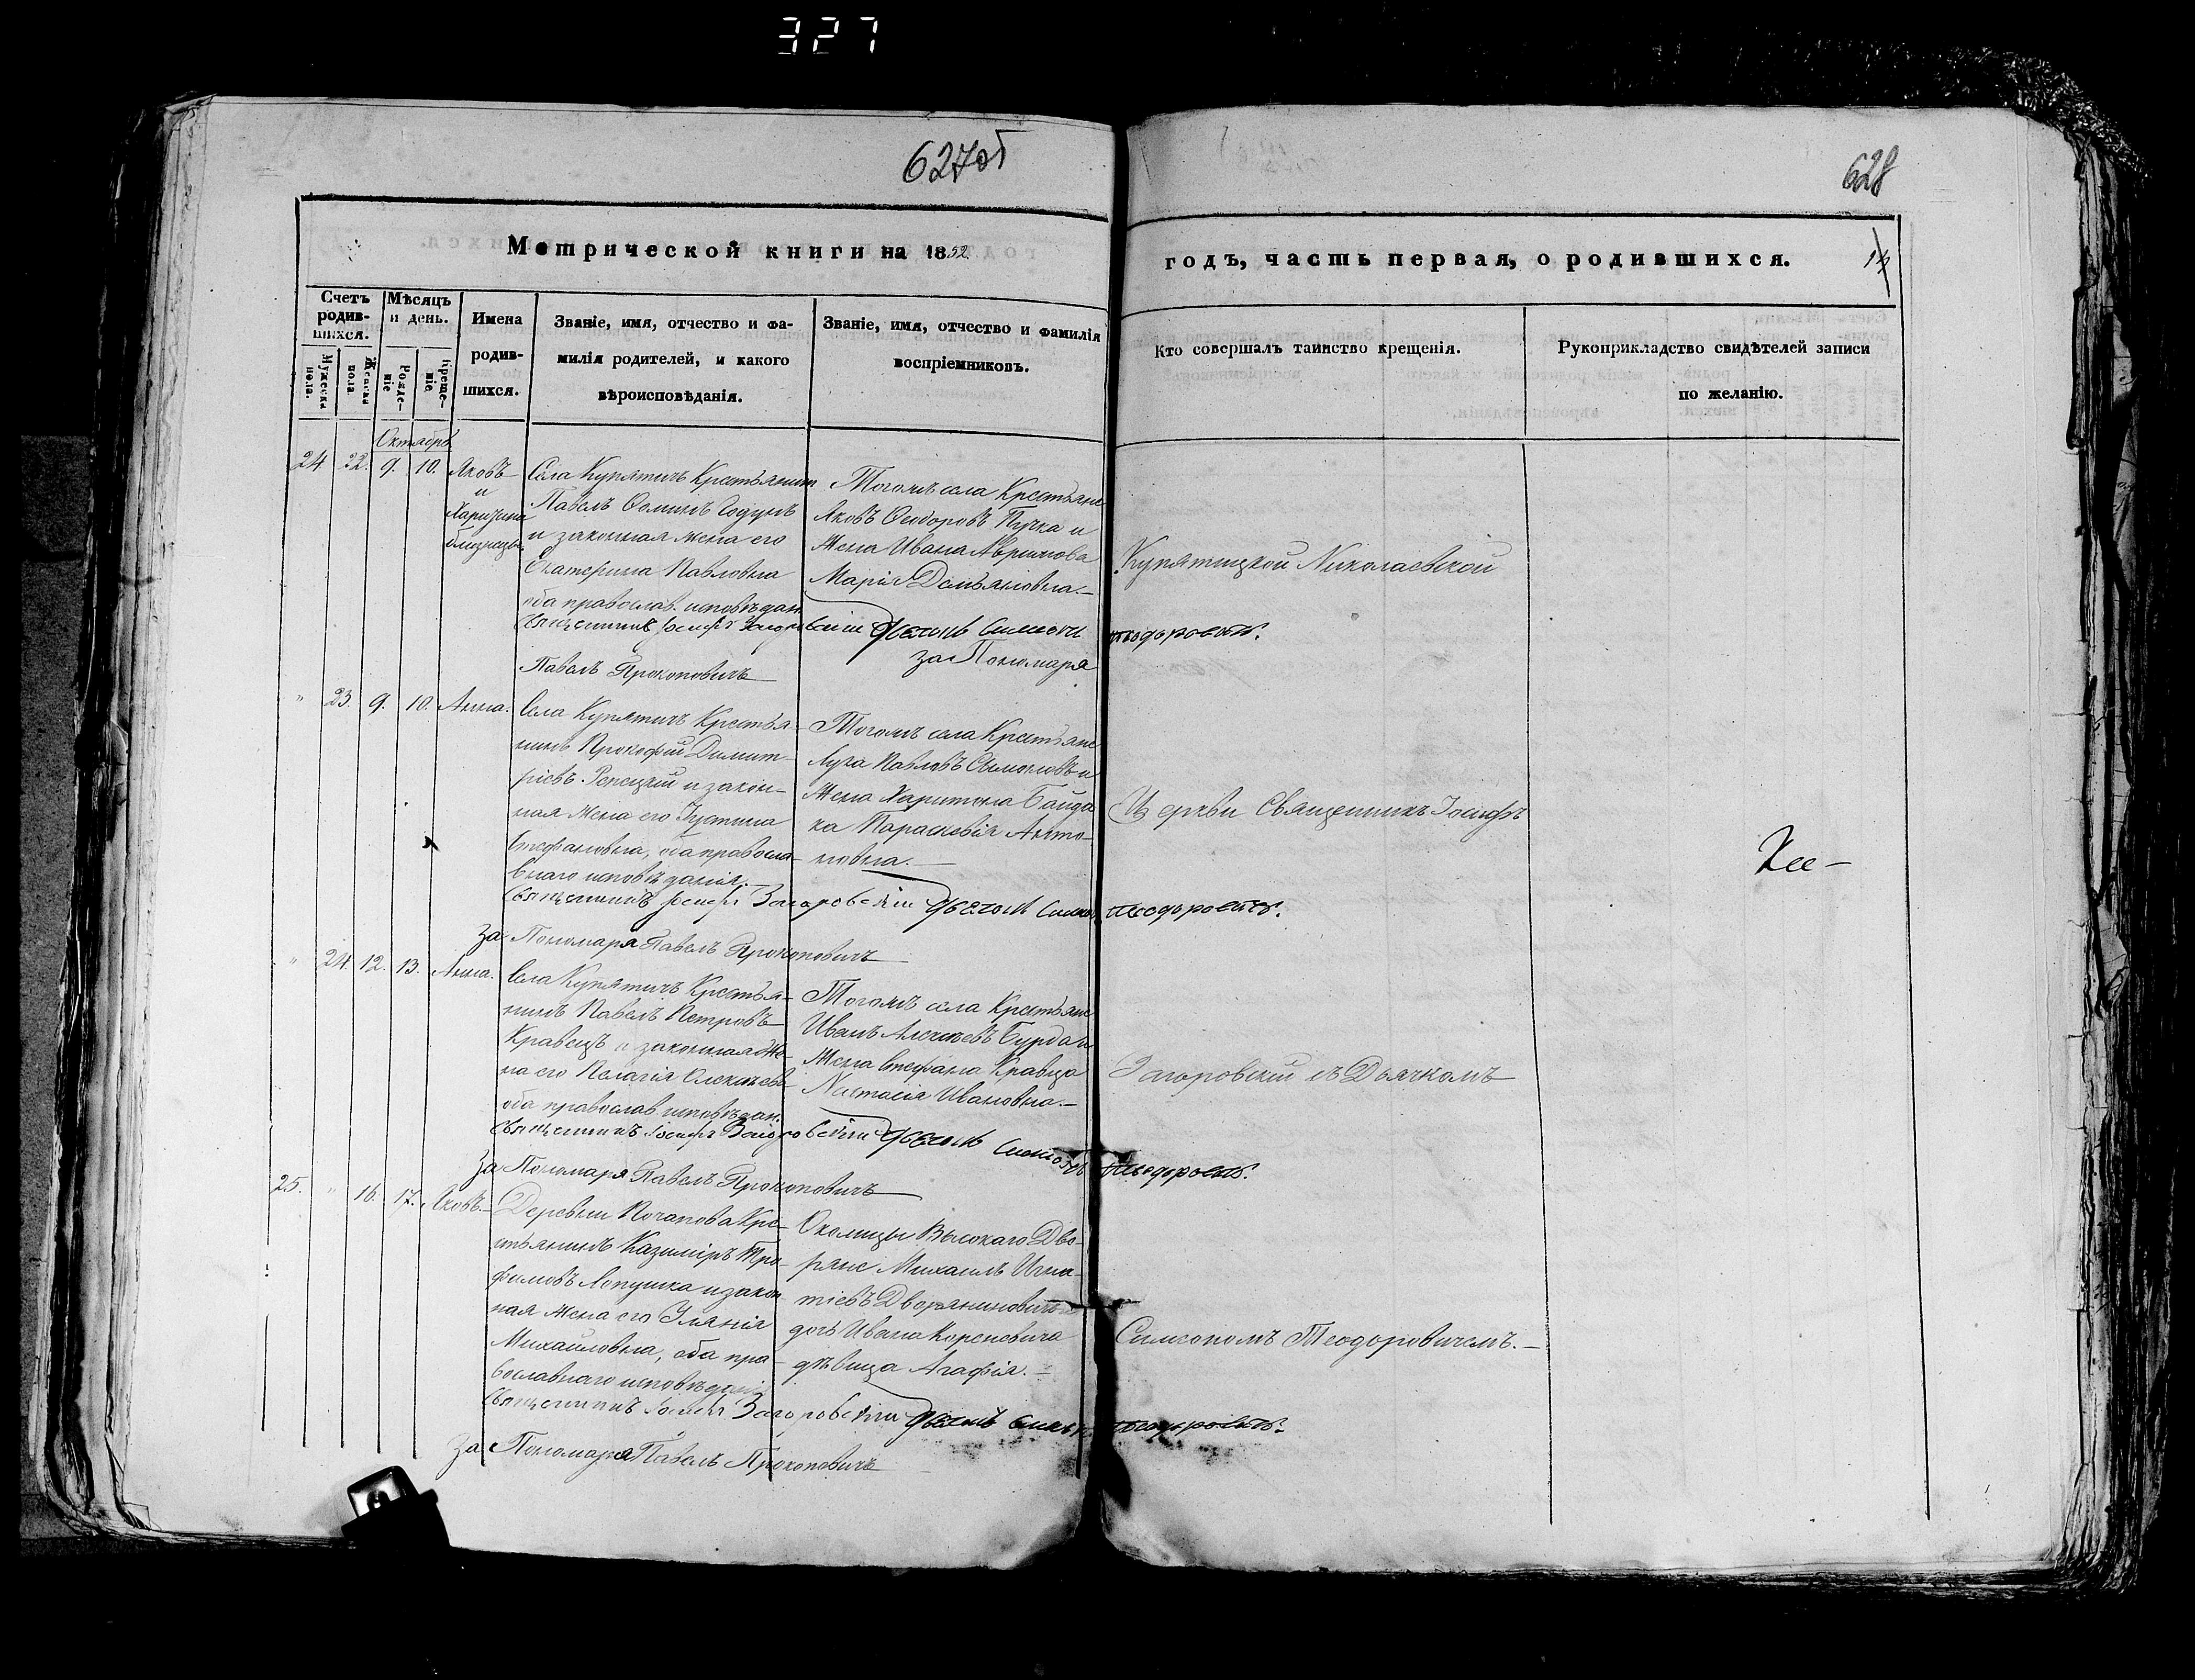 327
627об
628
Метрической книги на 1852
годъ, часть первая, о родившихся.
Счетъ родив-шихся.
Мужеска пола.
Женска пола.
Мѣсяцъ и день.
Рожде-ніе
Креще-ніе
Имена
родив-
шихся.
Званіе, имя, отчество и фа-
милія родителей, и какого
вѣроисповѣданія.
Званіе, имя, отчество и фамилія
воспріемниковъ.
Кто совершалъ таинство крещенія.
Рукоприкладство свидѣтелей записи
по желанію.
Октябрь
24 22. 9. 10.
Яковъ
и
близнецы
Села Купятичъ Крестьянинъ
Павелъ Ѳоминъ
и законная жена его
Екатерина Павловна
оба православ. исповѣдан.
Тогожъ села Крестьяне
Яковъ Ѳеодоровъ Пучка и
Жена Ивана
Марія Демьяновна.—
Священникъ Іосифъ Загоровскій Дьячокъ Симеонъ Теодоровичъ.
за Пономаря
Павелъ Прокоповичъ
" 23. 9. 10. Анна.
Села Купятичъ Крестья-
нинъ Прокофій Димит-
ріевъ Репецкій и закон-
ная жена его Іустина
Стефановна, оба правосла-
внаго исповѣданія.
Тогожъ села Крестьяне
Лука Павловъ и
Жена Харитона Байда
ка Параскевія Анто-
новна.—
Священникъ Іосифъ Загоровскій Дьячокъ Симеонъ Теодоровичъ.
За Пономаря Павелъ Прокоповичъ
" 24. 12. 13. Анна.
Села Купятичъ Крестья-
нинъ Павелъ Петровъ
Кравецъ и законная Же-
на его Пелагія
оба православ исповѣдан.
Тогожъ села Крестьяне
Иванъ Алексѣевъ Бурда и
Жена Стефана Кравца
Настасія Ивановна.—
Священникъ Іосифъ Загоровскій Дьячокъ Симеонъ Теодоровичъ.
За Пономаря Павелъ Прокоповичъ
25. " 16. 17. Яковъ.—
Деревни Почапова Кре-
стьянинъ Казиміръ Тро-
фимовъ Лопушка и закон
ная жена его Уліянія
Михайловна, оба пра-
вославнаго исповѣданія
Околицы Высокаго Дво-
ряне Михаилъ Игна-
тіевъ Дворяниновичъ и
дочь Ивана Кореневича
дѣвица Агафія.—
Священникъ Іосифъ Загоровскій Дьячокъ Симеонъ Теодоровичъ.
За Пономаря Павелъ Прокоповичъ
Купятицкой Николаевской
Церкви Священникъ Іосифъ
Загоровскій съ Дьячкомъ
Симеономъ Теодоровичемъ.—